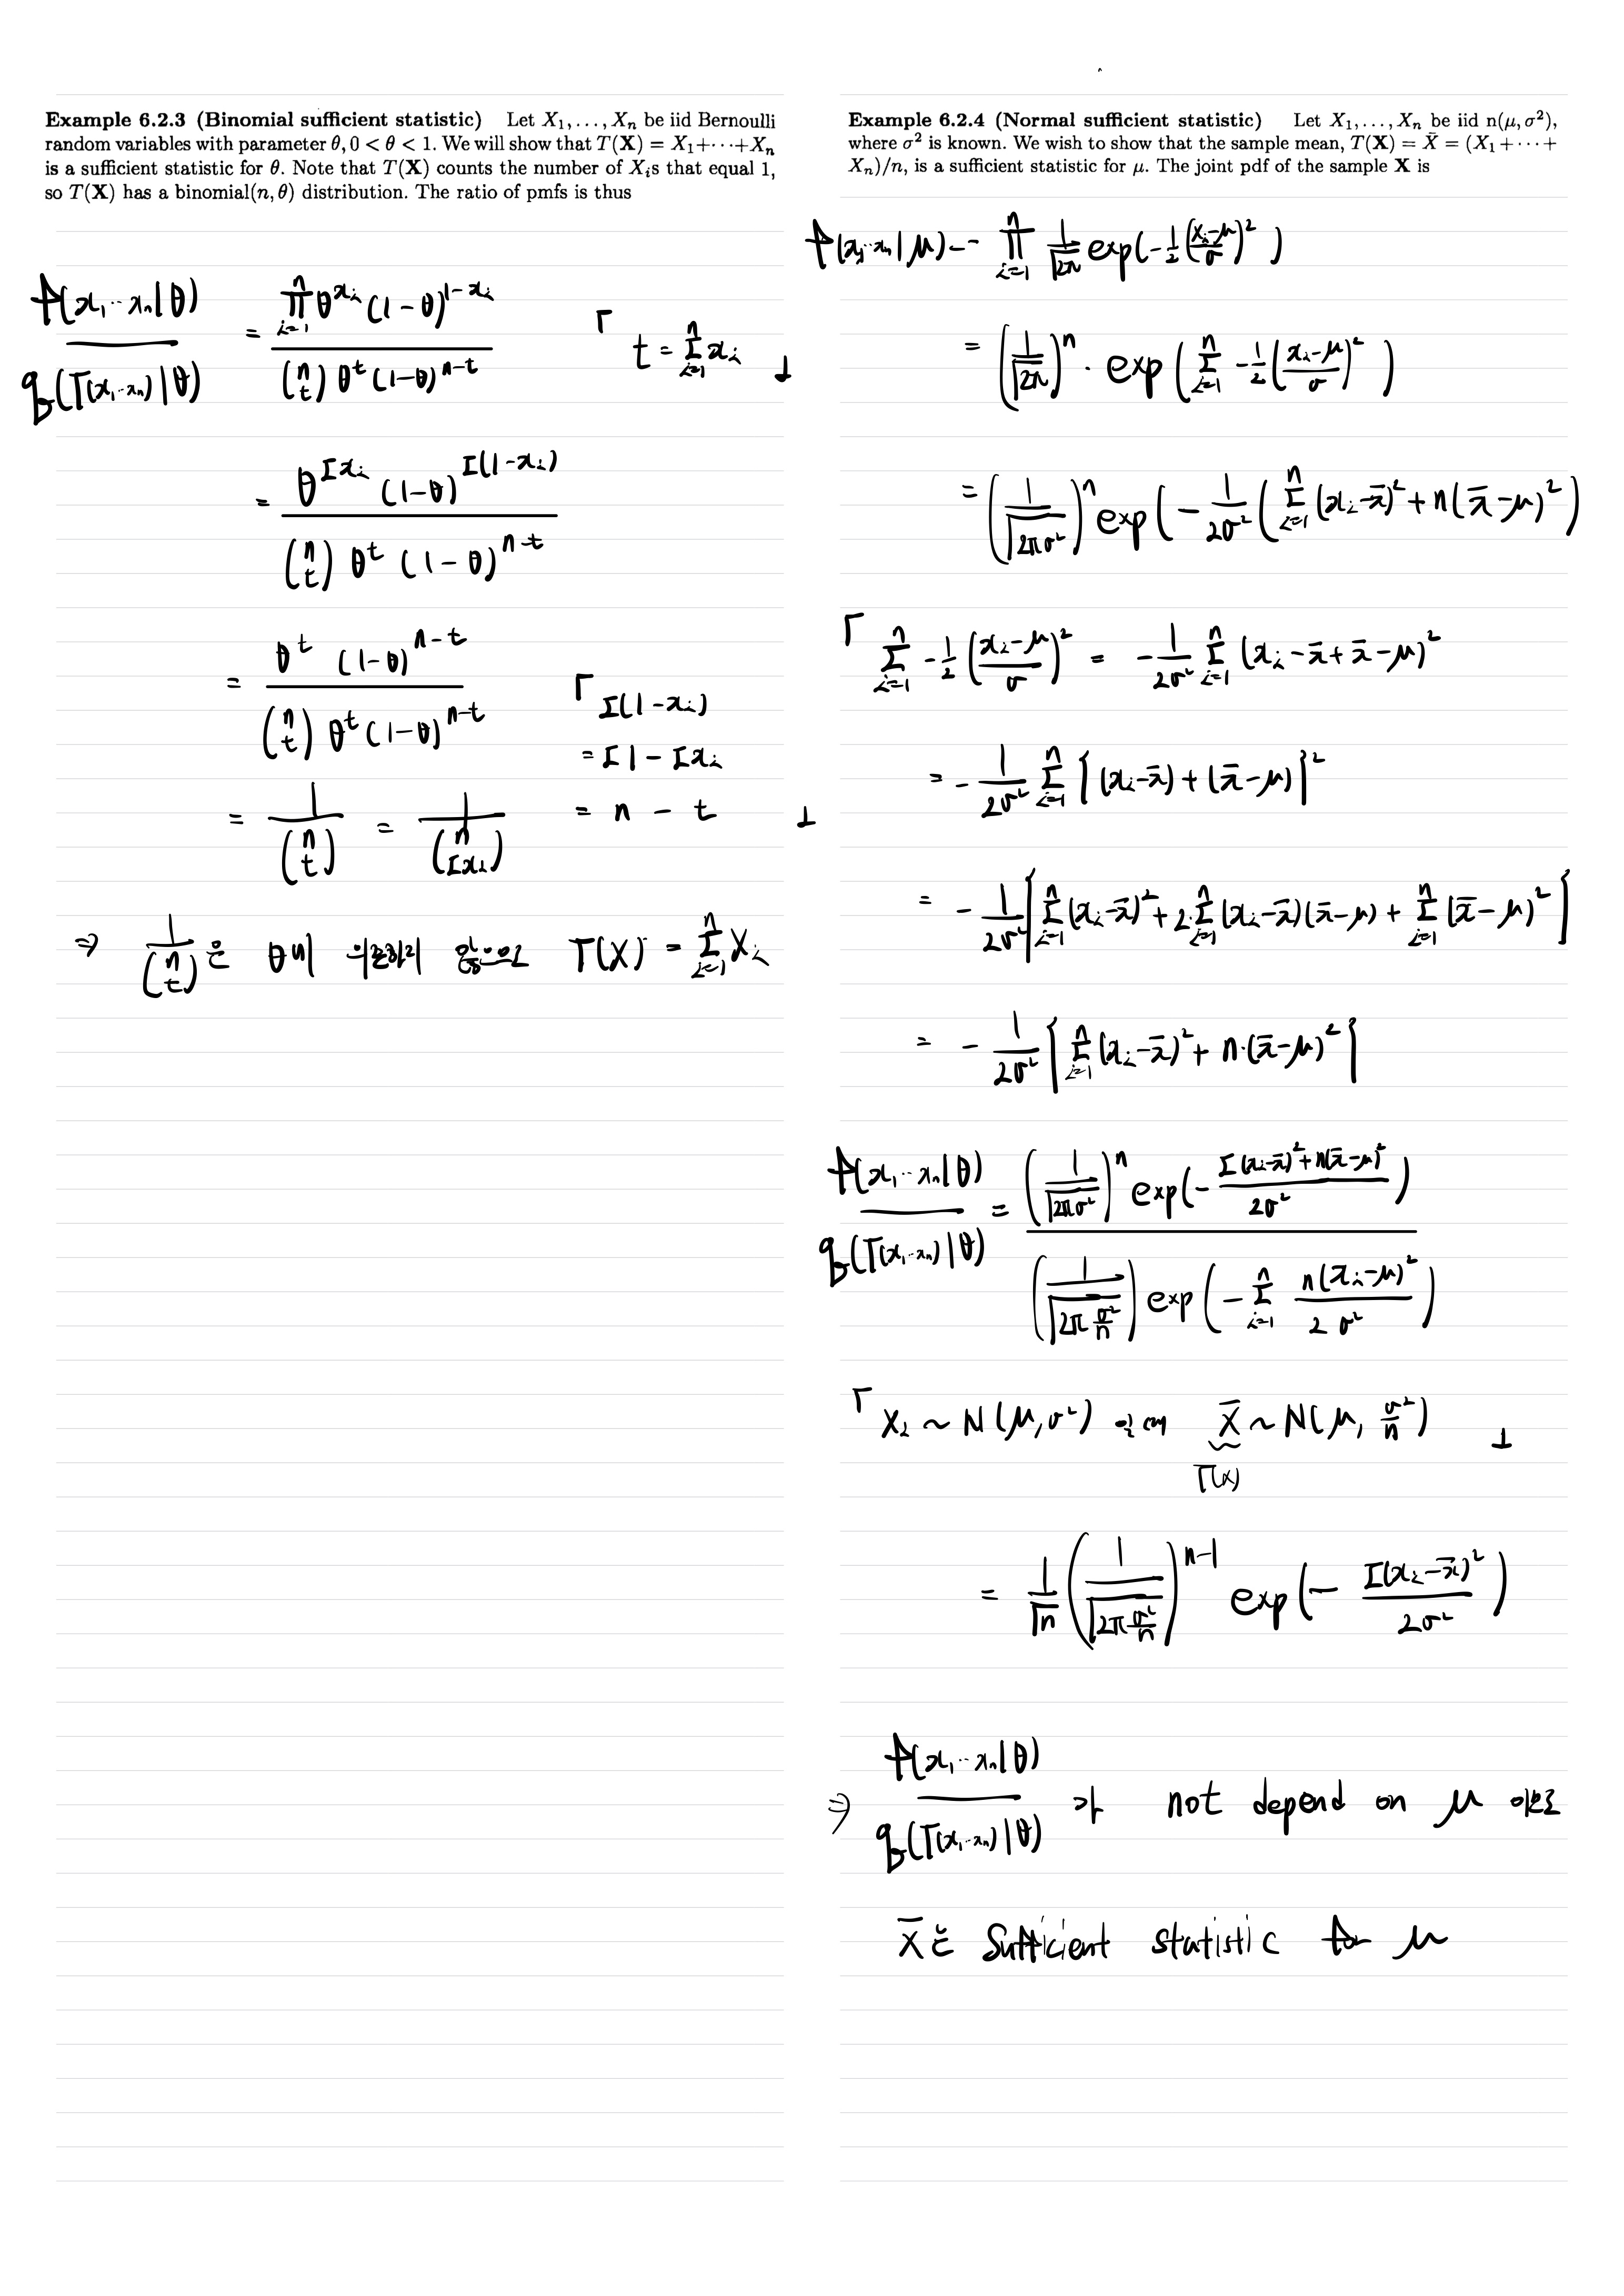 Example 6.2.3 (Binomial sufficient statistic) Let X₁, …, Xₙ be iid Bernoulli
random variables with parameter θ, 0 < θ < 1. We will show that T(X) = X₁+⋯+Xₙ
is a sufficient statistic for θ. Note that T(X) counts the number of Xᵢs that equal 1,
so T(X) has a binomial(n, θ) distribution. The ratio of pmfs is thus
f(x₁…xₙ|θ) / q(T(x₁…xₙ)|θ) = ∏_{i=1}^{n} θ^{xᵢ} (1-θ)^{1-xᵢ} / (n t) θ^t (1-θ)^{n-t} 「 t = Σ_{i=1}^{n} xᵢ 」
= θ^{Σxᵢ} (1-θ)^{Σ(1-xᵢ)} / (n t) θ^t (1-θ)^{n-t}
= θ^t (1-θ)^{n-t} / (n t) θ^t (1-θ)^{n-t}
「 Σ(1-xᵢ)
= Σ1 - Σxᵢ
= n - t 」
= 1 / (n t) = 1 / (n Σxᵢ)
⇒ 1 / (n t) 은 θ에 의존하지 않으므로 T(X) = Σ_{i=1}^{n} Xᵢ
Example 6.2.4 (Normal sufficient statistic) Let X₁, …, Xₙ be iid n(μ, σ²),
where σ² is known. We wish to show that the sample mean, T(X) = X̄ = (X₁+⋯+
Xₙ)/n, is a sufficient statistic for μ. The joint pdf of the sample X is
f(x₁…xₙ|μ) = ∏_{i=1}^{n} 1/√2π exp(-1/2 ((xᵢ-μ)/σ)²)
= (1/√2π)ⁿ · exp(Σ_{i=1}^{n} -1/2 ((xᵢ-μ)/σ)²)
= (1/√2πσ²)ⁿ exp(-1/2σ² (Σ_{i=1}^{n} (xᵢ-x̄)² + n(x̄-μ)²)
「 Σ_{i=1}^{n} -1/2 ((xᵢ-μ)/σ)² = -1/2σ² Σ_{i=1}^{n} (xᵢ-x̄+x̄-μ)²
= -1/2σ² Σ_{i=1}^{n} {(xᵢ-x̄) + (x̄-μ)}²
= -1/2σ² {Σ_{i=1}^{n} (xᵢ-x̄)² + 2·Σ_{i=1}^{n} (xᵢ-x̄)(x̄-μ) + Σ_{i=1}^{n} (x̄-μ)²}
= -1/2σ² {Σ_{i=1}^{n} (xᵢ-x̄)² + n·(x̄-μ)²}
f(x₁…xₙ|θ) / q(T(x₁…xₙ)|θ) = (1/√2πσ²)ⁿ exp(-(Σ(xᵢ-x̄)²+n(x̄-μ)²)/2σ²) / (1/√2π σ²/n) exp(-Σ_{i=1}^{n} n(x̄ᵢ-μ)²/2σ²)
「 Xᵢ ~ N(μ, σ²) 일 때 X̄ ~ N(μ, σ²/n) 」
T(x)
= 1/√n (1/√2π σ²/n)^{n-1} exp(-Σ(xᵢ-x̄)²/2σ²)
⇒ f(x₁…xₙ|θ) / q(T(x₁…xₙ)|θ) 가 not depend on μ 이므로
X̄는 Sufficient statistic for μ